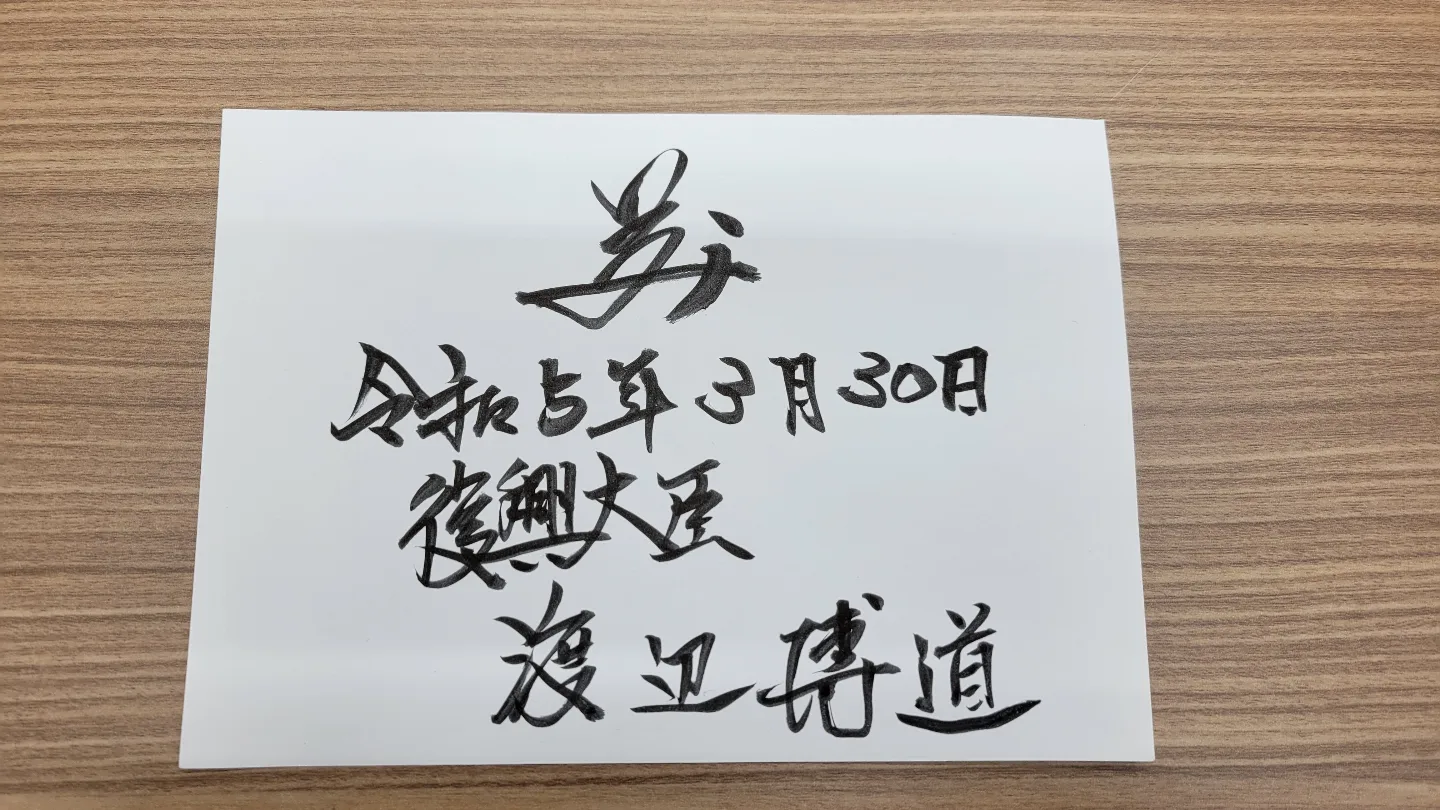 義
令和5年3月30日
復興大臣
渡辺博道